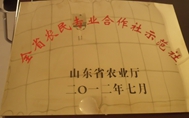 全省农民专业合作社示范社
山东省农业厅
二〇一二年七月